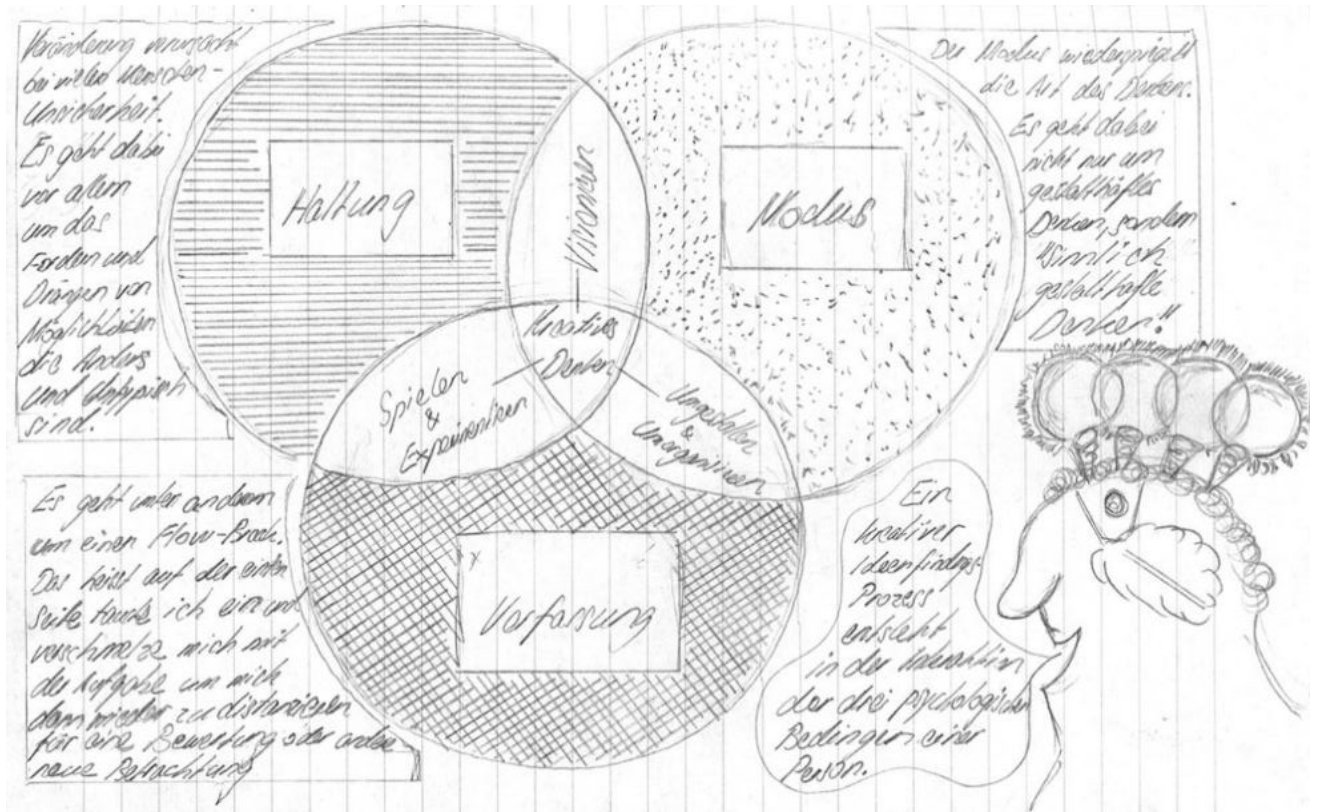 Veränderung verursacht
bei vielen Menschen -
Unsicherheit.
Es geht dabei
vor allem
um das
Fordern und
Drängen von
Möglichkeiten
die Anders
und Untypisch
sind.
Haltung
Visionieren
Modus
Der Modus wiederspiegelt
die Art des Denkens.
Es geht dabei
nicht nur um
gestalthaftes
Denken, sondern
"Sinnlich
gestalthafte
Denken"
Kreatives
Denken
Spielen
&
Experimentieren
Umgestalten
&
Umorganisieren
Verfassung
Es geht unter anderem
um einen Flow-Break.
Das heisst auf der einten
Seite tauche ich ein und
verschmelze mich mit
der Aufgabe um mich
dann wieder zu distanzieren
für eine Bewertung oder andere
neue Betrachtung
Ein
kreativer
Ideenfindungs-
Prozess
entsteht
in der Interaktion
der drei psychologischen
Bedingen einer
Person.